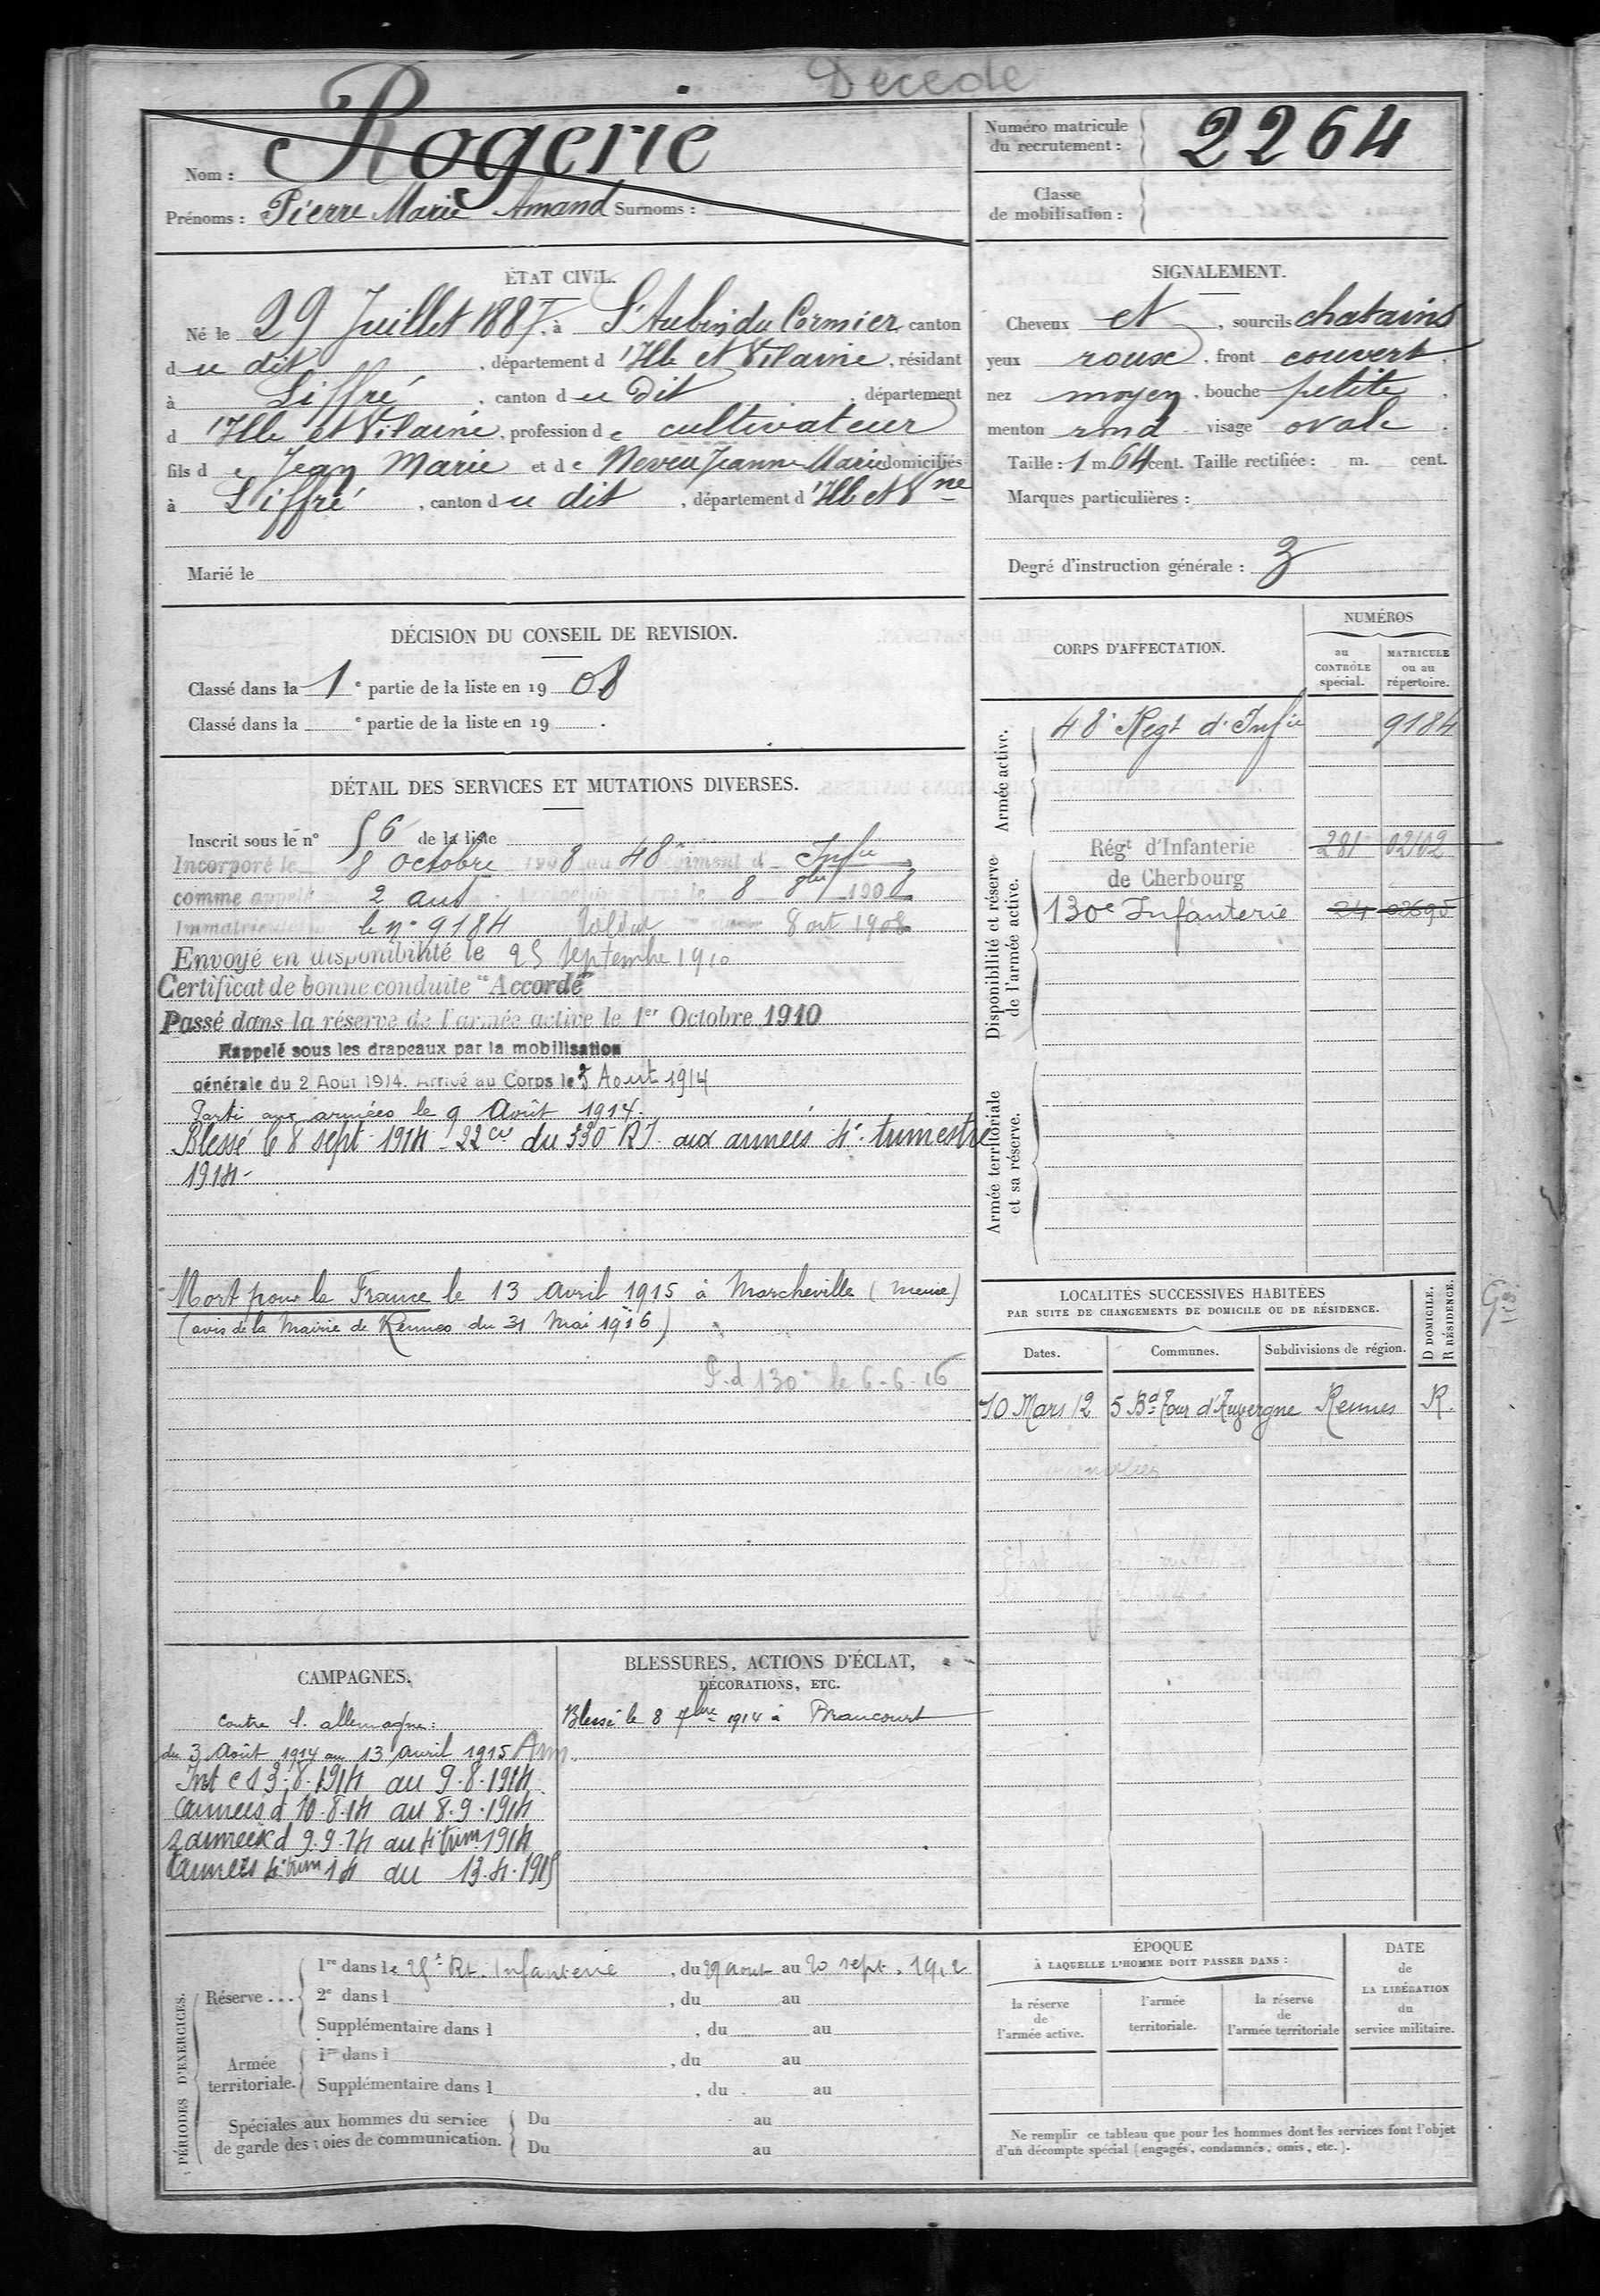 Décédé
Nom : Rogerie
Prénoms : Pierre Marie Amand Surnoms :
Numéro matricule
du recrutement : 2264
Classe
de mobilisation :
ÉTAT CIVIL.
Né le 29 Juillet 1887, à St Aubin du Cormier, canton
du dit, département d'Ille et Vilaine, résidant
à Liffré, canton du Dit, département
d'Ille et Vilaine, profession de cultivateur
fils de Jean Marie et de Neveu Jeanne Marie domiciliés
à Liffré, canton du dit, département d'Ille et Vne
Marié le
SIGNALEMENT.
Cheveux et, sourcils chatains
yeux roux, front couvert,
nez moyen, bouche petite,
menton rond visage ovale.
Taille : 1 m. 64 cent. Taille rectifiée : m. cent.
Marques particulières :
Degré d'instruction générale : 3
DÉCISION DU CONSEIL DE REVISION.
Classé dans la 1e partie de la liste en 1908
Classé dans la e partie de la liste en 19 .
DÉTAIL DES SERVICES ET MUTATIONS DIVERSES.
Inscrit sous le n° 56 de la liste
Incorporé le 8 octobre 1908 au 48e Régiment d'Infie
comme appelé 2 ans 8 8bre 1908
Immatriculé le n° 9184 soldat 8 oct 1908
Envoyé en disponibilité le 25 septembre 1910
Certificat de bonne conduite "Accordé"
Passé dans la réserve de l'armée active le 1er Octobre 1910
Rappelé sous les drapeaux par la mobilisation
générale du 2 Août 1914. Arrivé au Corps le 3 Août 1914
Parti aux armées le 9 Août 1914.
Blessé le 8 sept 1914 - 22e Cie du 330e RI aux armées 4e trimestre
1914 -
Mort pour la France le 13 avril 1915 à Marcheville (Meuse)
(avis de la Mairie de Rennes du 31 Mai 1916)
P. d 130e le 6-6-16
CORPS D'AFFECTATION.
NUMÉROS
au
CONTRÔLE
spécial.
MATRICULE
ou au
répertoire.
Armée active.
48e Regt d'Infie 9184
Disponibilité et réserve
de l'armée active.
Régt d'Infanterie 281 02102
de Cherbourg
130e Infanterie 24 02695
Armée territoriale
et sa réserve.
LOCALITÉS SUCCESSIVES HABITÉES
PAR SUITE DE CHANGEMENTS DE DOMICILE OU DE RÉSIDENCE.
D DOMICILE.
R RÉSIDENCE.
Dates. Communes. Subdivisions de région.
10 Mars 12 5 Bd Tour d'Auvergne Rennes R.
CAMPAGNES.
contre l'allemagne :
du 3 Août 1914 au 13 avril 1915
Int C S 3.8.1914 au 9.8.1914
C armées d 10.8.14 au 8.9.1914
d 9.9.14 au 4e trim 1914
C armées 4e trim 14 au 13.4.1915
BLESSURES, ACTIONS D'ÉCLAT,
DÉCORATIONS, ETC.
Blessé le 8 7bre 1914 à
PÉRIODES D'EXERCICES.
Réserve ...
1re dans le 25e Rt. Infanterie, du 29 aout au 20 sept. 1912
2e dans l , du au
Supplémentaire dans l , du au
Armée
territoriale.
1re dans l , du au
Supplémentaire dans l , du au
Spéciales aux hommes du service
de garde des voies de communication.
Du au
Du au
ÉPOQUE
À LAQUELLE L'HOMME DOIT PASSER DANS :
la réserve
de
l'armée active.
l'armée
territoriale.
la réserve
de
l'armée territoriale
DATE
de
LA LIBÉRATION
du
service militaire.
Ne remplir ce tableau que pour les hommes dont les services font l'objet
d'un décompte spécial (engagés, condamnés, omis, etc.).